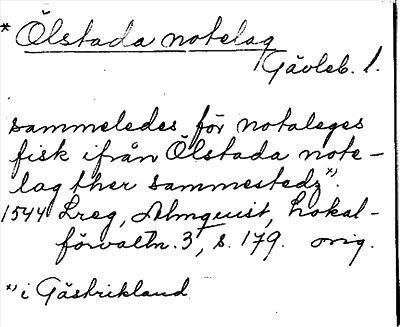 * Ölstada notelag
Gävleb. l.
sammeledes för notaleges
fisk ifrån Ölstada note-
lag ther sammestedz *).
1544 Lreg, Almquist, Lokal-
förvaltn. 3, s. 179. orig.
*) i Gästrikland